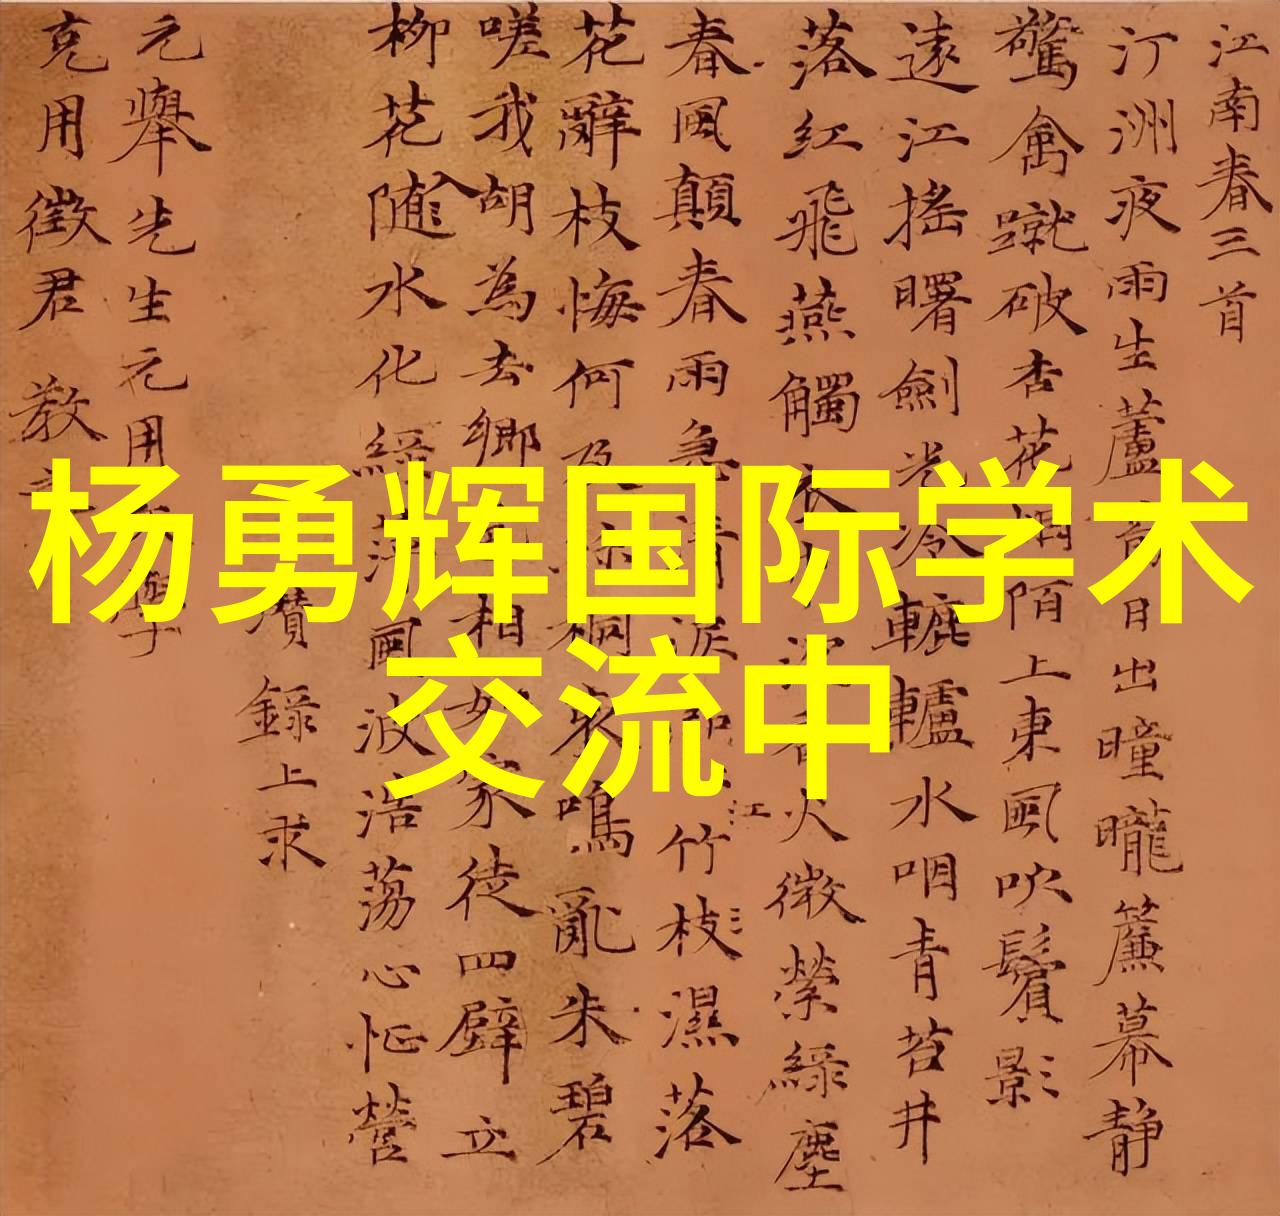 杨勇辉国际学术
交流中
江南春三首
汀洲夜雨生蘆日出曈曨簾幕静
驚禽蹴破杏花煙陌上東風吹鬢影
遠江搖曙劍光冷轆轤水咽青苔井
落紅飛燕觸衣沉香火微縈綠塵
春風顛春雨急清淚江竹枝濕落
花辭枝悔何及桐哀鳴亂朱碧
嗟我胡為去鄉相如家徒四壁立
柳花隨入水化綠萍風波浩蕩心怔營
瓚錄上求
元舉先生元用學
克用徵君教